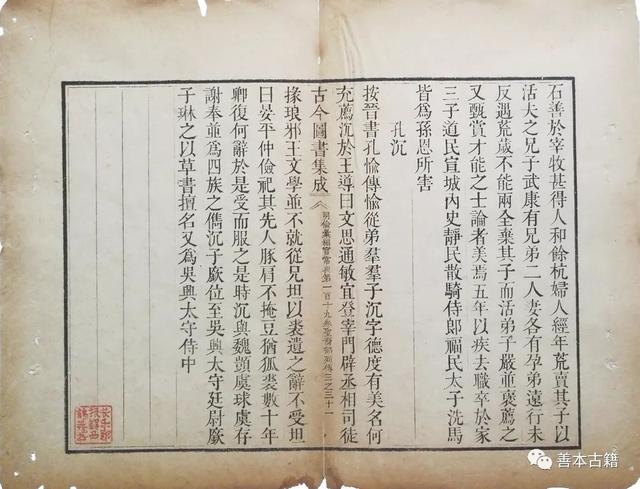 石善於宰牧甚得人和餘杭婦人經年荒賣其子以
活夫之兄子武康有兄弟二人妻各有孕弟遠行未
反遇荒歲不能兩全棄其子而活弟子嚴並褒薦之
又甄賞才能之士論者美焉五年以疾去職卒於家
三子道民宣城內史靜民散騎侍郎福民太子洗馬
皆為孫恩所害
孔沉
按晉書孔愉傳愉從弟羣羣子沉字德度有美名何
充薦沉於王導曰文思通敏宜登宰門辟丞相司徒
古今圖書集成
明倫彙編官常典第一百十九卷聖裔部列傳三之三十一
掾琅邪王文學並不就從兄坦以裘遺之辭不受坦
曰晏平仲儉祀其先人豚肩不掩豆猶狐裘數十年
卿復何辭於是受而服之是時沉與魏顗虞球虞存
謝奉並為四族之儁沉子廞位至吳興太守廷尉廞
子琳之以草書擅名又為吳興太守侍中
善本古籍